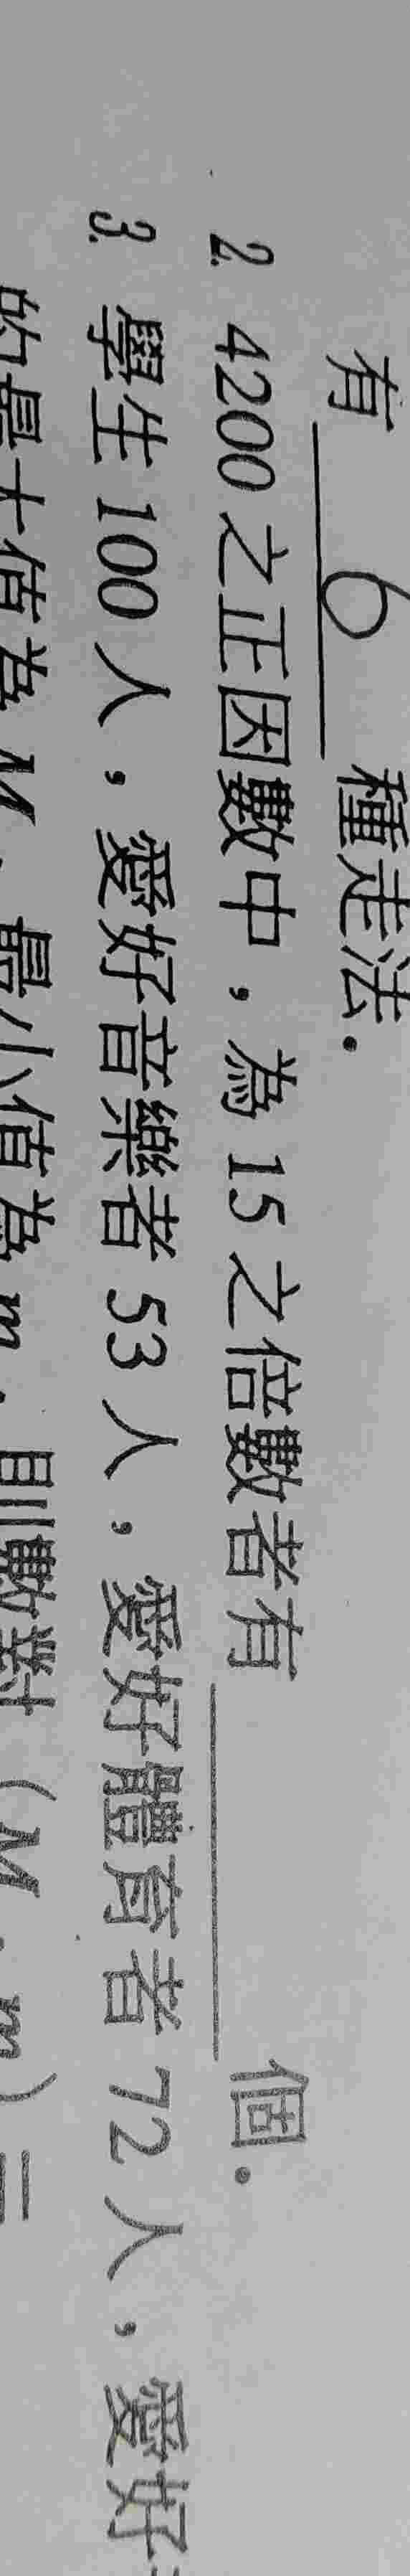 有 6 種走法.
2. 4200 之正因數中，為 15 之倍數者有 個.
3. 學生 100 人，愛好音樂者 53 人，愛好體育者 72 人，愛好
的最大值為 M，最小值為 m，則數對（M，m）=